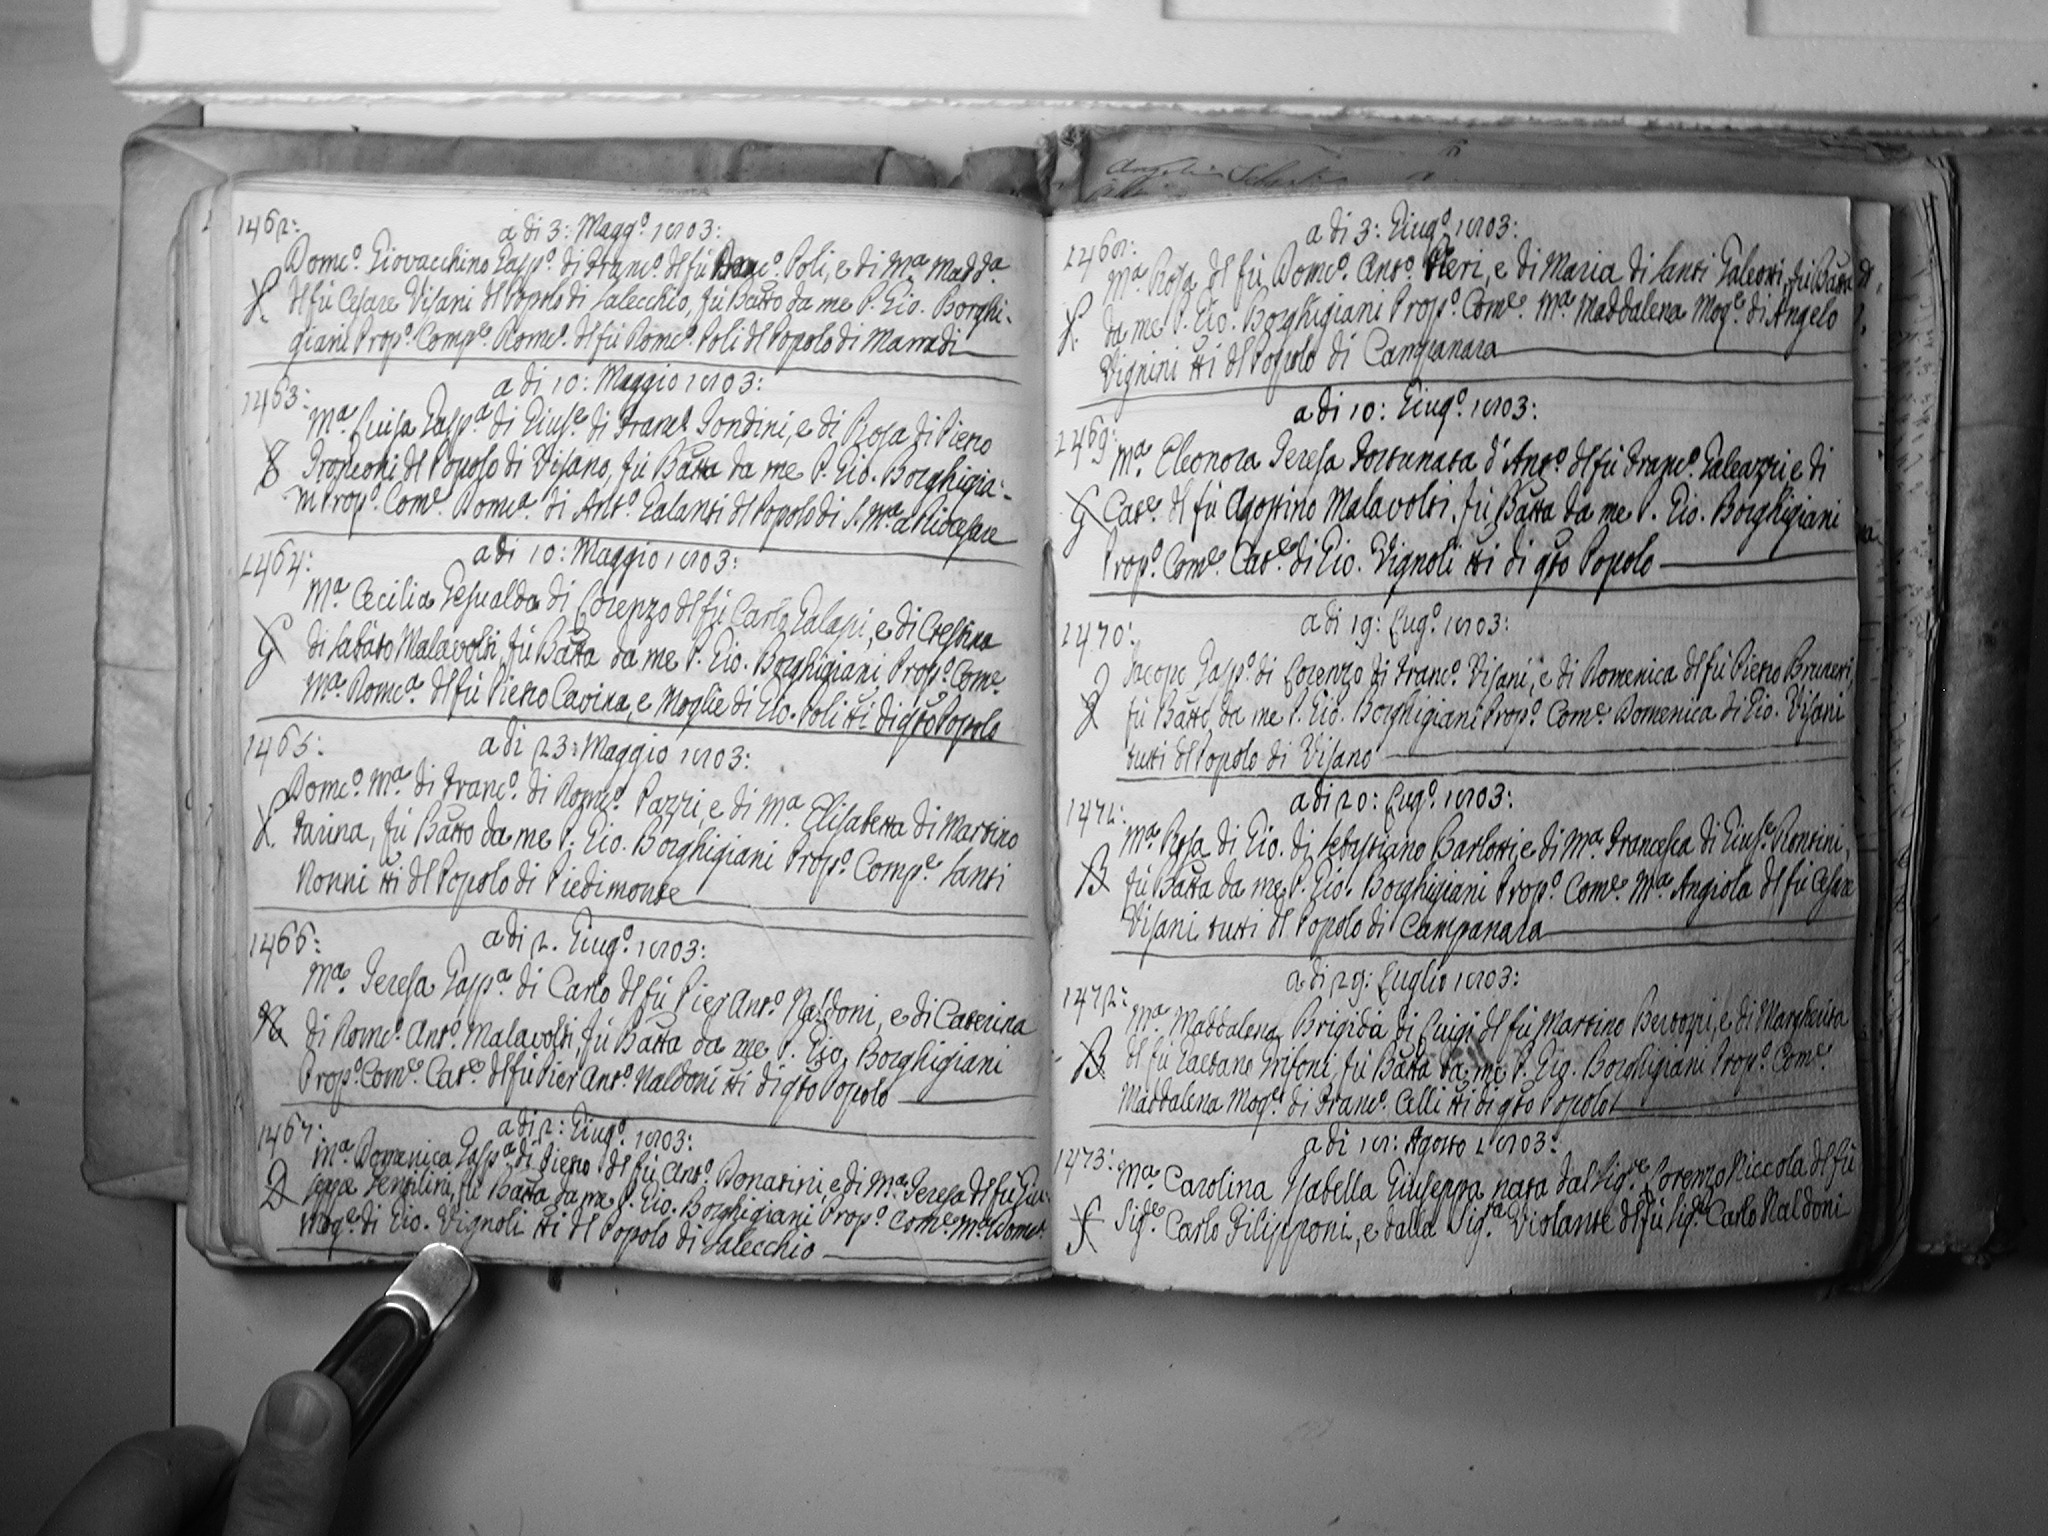 1462:
a di 3: Magg.º 1803:
Domc.º Giovacchino Gasp.º di Franc.º del fù Domc.º Poli, e di M.ª Madd.ª
del fù Cesare Visani del Popolo di Salecchio, fù Batto da me P. Gio. Borghi-
giani Prop.º Comp.e Domc.º del fù Domc.º Poli del Popolo di Marradi
1463:
a di 10: Maggio 1803:
M.ª Luisa Gasp.ª di Gius.e di Franc.º Gondini, e di Rosa di Pietro
di Visano, fù Batta da me P. Gio. Borghigia-
ni Prop.º Com.e Domc.ª di Ant.º Galanti del Popolo di S. M.ª a Riocesare
1464:
a di 10: Maggio 1803:
M.ª Cecilia Gesualda di Lorenzo del fù Carlo Galassi, e di Crestina
di Sabato Malavolti, fù Batta da me P. Gio. Borghigiani Prop.º Com.e
M.ª Domc.ª del fù Pietro Cavina, e Moglie di Gio. Poli tti di qsto Popolo
1465:
a di 23: Maggio 1803:
Domc.º M.ª di Franc.º di Domc.º Pazzi, e di M.ª Elisabetta di Martino
Farina, fù Batto da me P. Gio. Borghigiani Prop.º Comp.e Santi
Nonni tti del Popolo di Piedimonte
1466:
a di 2. Giug.º 1803:
M.ª Teresa Gasp.ª di Carlo del fù Pier Ant.º Naldoni, e di Caterina
di Domc.º Ant.º Malavolti, fù Batta da me P. Gio. Borghigiani
Prop.º Com.e Cat.e del fù Pier Ant.º Naldoni tti di qsto Popolo
1467:
a di 2: Giug.º 1803:
M.ª Domenica Gasp.ª di Pietro del fù Ant.º Donatini, e di M.ª Teresa del fù Giu-
seppe Gentilini, fù Batta da me P. Gio. Borghigiani Prop.º Com.e M.ª Domc.ª
Mog.e di Gio. Vignoli tti del Popolo di Salecchio
1468:
a di 3: Giug.º 1803:
M.ª Rosa del fù Domc.º Ant.º Pieri, e di Maria di Santi Galeotti, fù Batta
da me P. Gio. Borghigiani Prop.º Com.e M.ª Maddalena Mog.e di Angelo
Vignini tti del Popolo di Campanara
1469:
a di 10: Giug.º 1803:
M.ª Eleonora Teresa Fortunata d'Ant.º del fù Franc.º Galeazzi e di
Cat.e del fù Agostino Malavolti, fù Batta da me P. Gio. Borghigiani
Prop.º Com.e Cat.e di Gio. Vignoli tti di qsto Popolo
1470:
a di 19: Lug.º 1803:
Jacopo Gasp.º di Lorenzo di Franc.º Visani, e di Domenica del fù Pietro Bruneri,
fù Batto da me P. Gio. Borghigiani Prop.º Com.e Domenica di Gio. Visani
tutti del Popolo di Visano
1471:
a di 20: Lug.º 1803:
M.ª Rosa di Gio. di Sebastiano Barlotti, e di M.ª Francesca di Gius.e Rontini,
fù Batta da me P. Gio. Borghigiani Prop.º Com.e M.ª Angiola del fù Cesare
Visani tutti del Popolo di Campanara
1472:
a di 29: Luglio 1803:
M.ª Maddalena Brigida di Luigi del fù Martino Bertozzi, e di Margherita
del fù Gaetano Grifoni, fù Batta da me P. Gio. Borghigiani Prop.º Com.e
Maddalena Mog.e di Franc.º Celli tti di qsto Popolo
1473:
a di 18: Agosto 1803:
M.ª Carolina Isabella Giuseppa nata dal Sig.re Lorenzo Niccola del fù
Sig.re Carlo Filipponi, e dalla Sig.ra Violante del fù Sig.re Carlo Naldoni